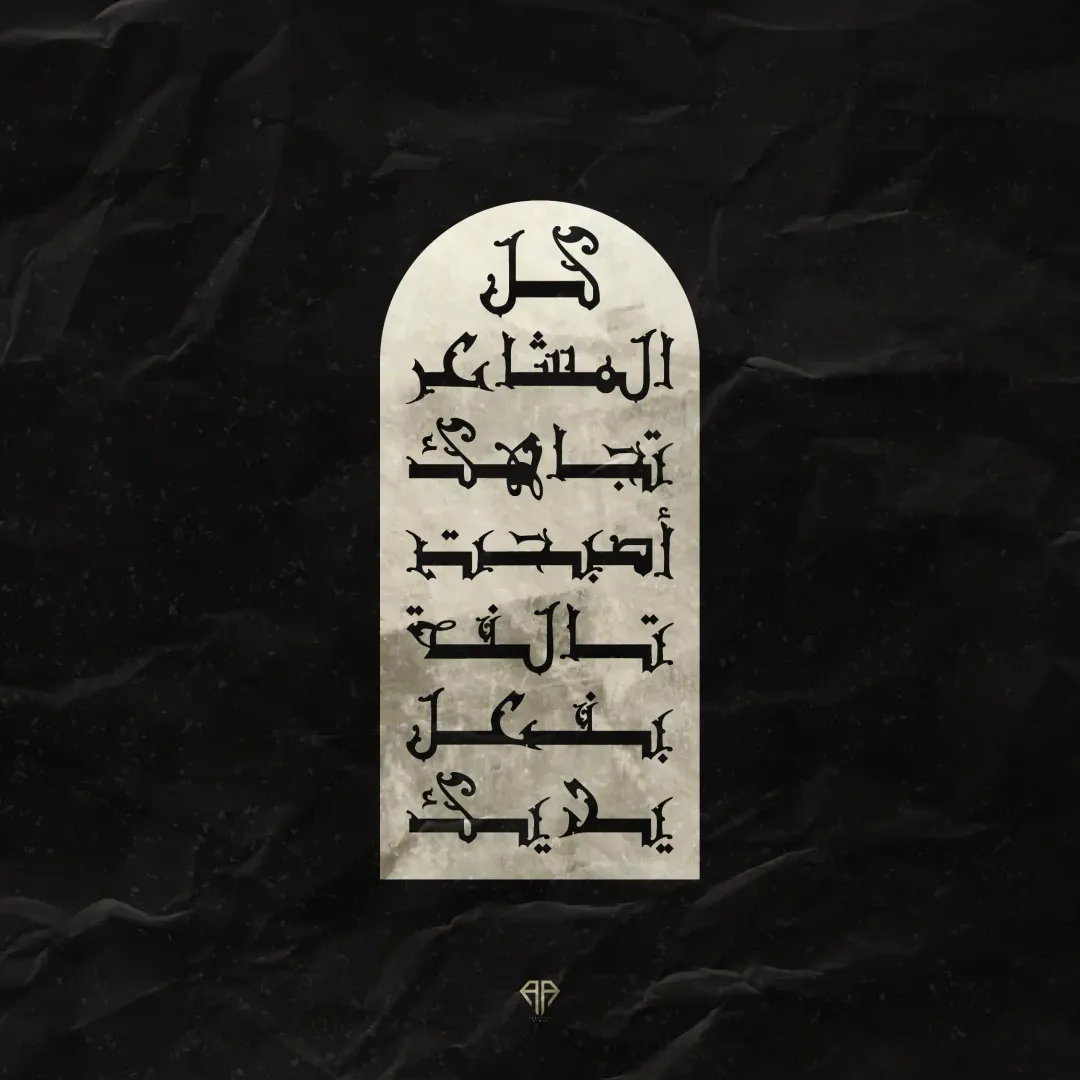 كل
المشاعر
تجاهك
أصبحت
تالفة
بفعل
يديك